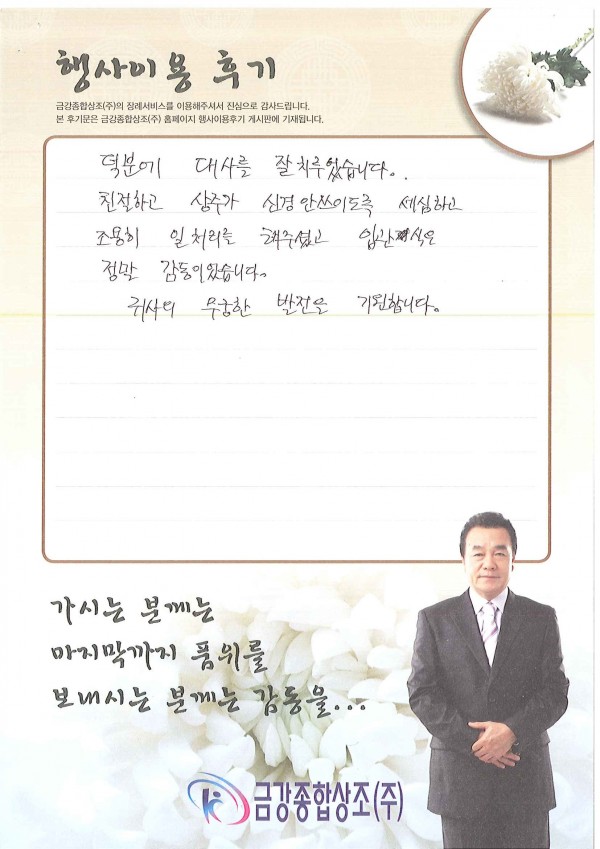 행사이용 후기
금강종합상조(주)의 장례서비스를 이용해주셔서 진심으로 감사드립니다.
본 후기문은 금강종합상조(주) 홈페이지 행사이용후기 게시판에 기재됩니다.
덕분에 대사를 잘 치루었습니다.
친절하고 상주가 신경 안쓰이도록 세심하고
조용히 일처리를 해주셨고 입관식은
정말 감동이었습니다.
귀사의 무궁한 발전을 기원합니다.
가시는 분께는
마지막까지 품위를
보내시는 분께는 감동을...
금강종합상조(주)